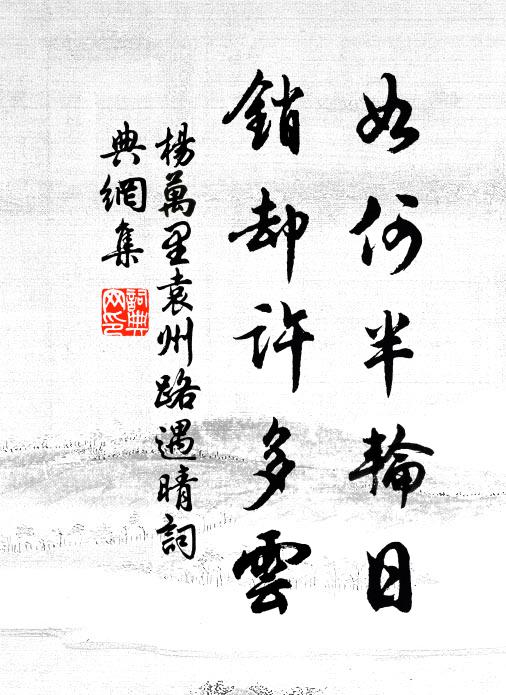 如何半輪日
銷却許多雲
楊萬里袁州路遇晴詞
典網集
詞典
网印